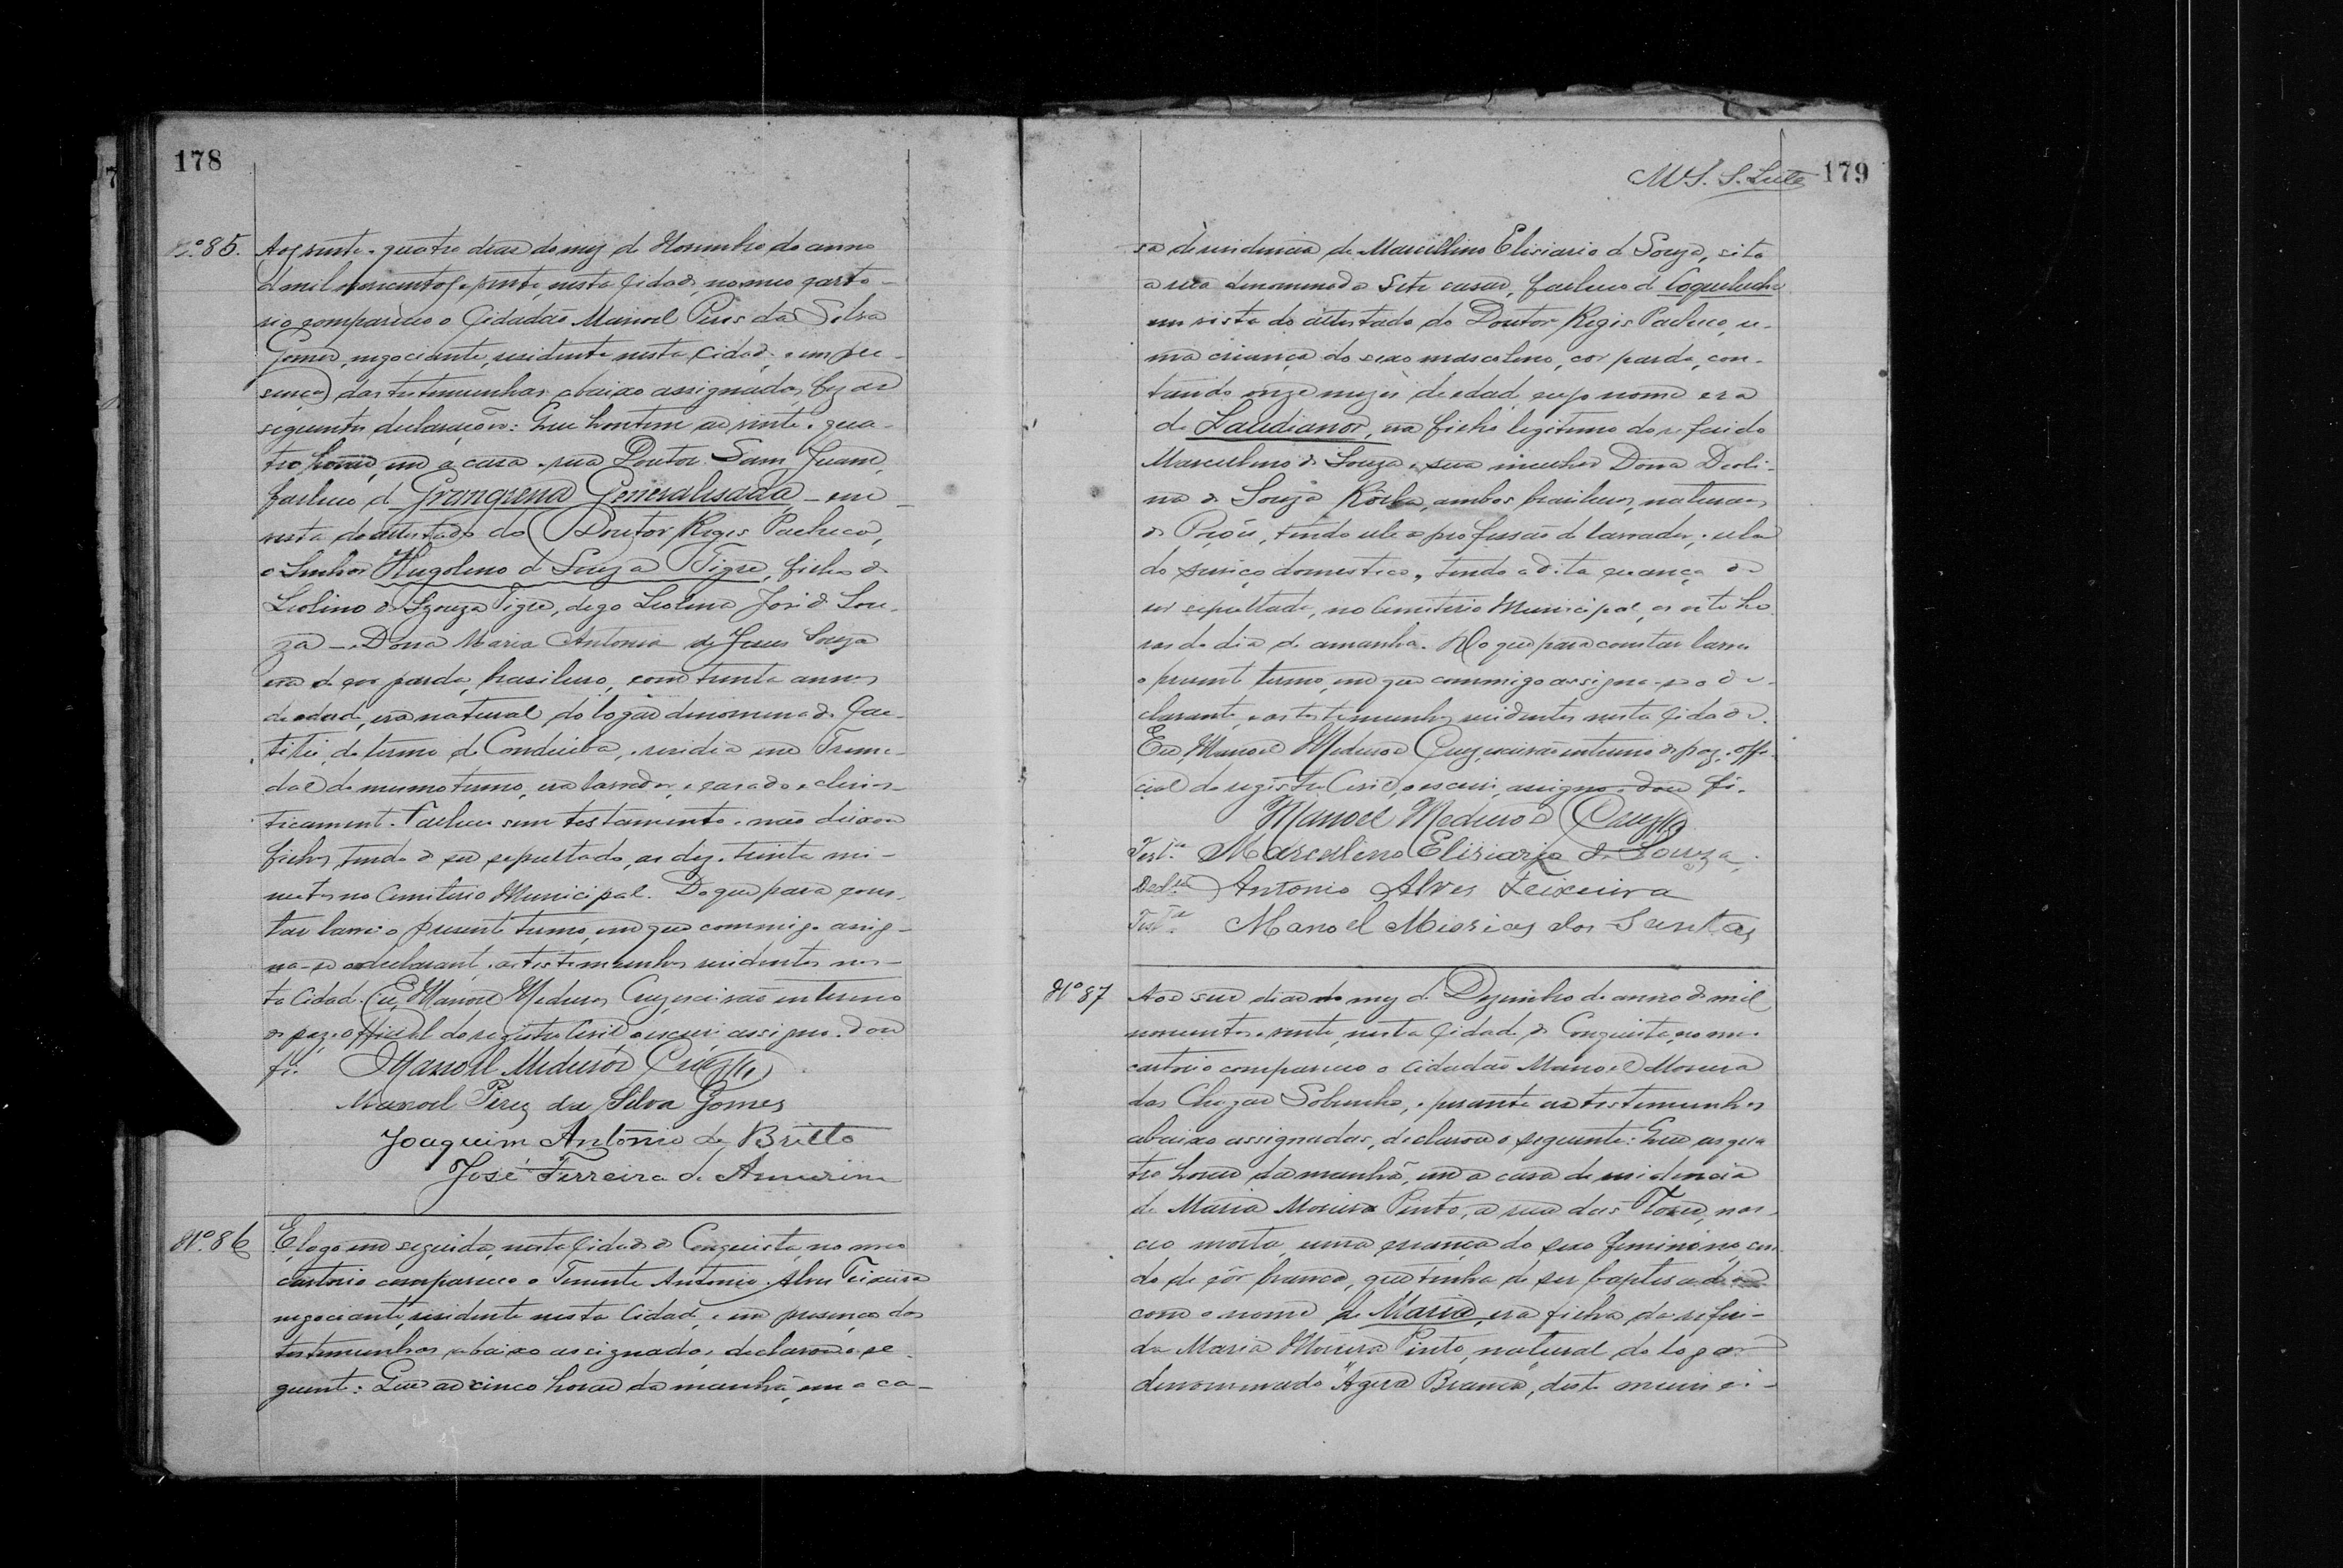 178
Nº 85. Aos vinte e quatro dias do mez de Novembro do anno
de mil novecentos e vinte, nesta Cidade, no meu carto-
rio compareceu o Cidadão Manoel Pires da Silva
Gomes, negociante, residente nesta Cidade, e em pre-
sença das testemunhas abaixo assignadas, fez as
seguintes declarações: Que hontem as vinte e qua-
tro horas, em a casa a rua Doutor
falleceu de Grangrena Generalisada, em
vista do attestado do Doutor Regis Pacheco,
o Senhor Hugolino de Souza Tigre, filho de
Leolino de Souza Tigre, digo Leolino José de Sou-
za e Dona Maria Antonia de Jesus Souza
era de cor parda, brasileiro, com trinta annos
de edade, era natural do logar denominado Cae-
titú, do termo de Condeúba, e residia em Treme-
dal do mesmo termo, era lavrador, e casado eclesias-
ticamente. Falleceu sem testamento e não deixou
filhos, tendo de ser sepultado, as dez e trinta mi-
nutos no Cemiterio Municipal. Do que para cons-
tar lavrei o presente termo, em que commigo assig-
na-se o declarante e as testemunhas residentes nes-
ta Cidade. Eu, Manoel Medeiros Cruz, escrivão interino
de paz e official do registro Civil, o escrevi, assigno e dou
fé. Manoel Medeiros Cruz
Manoel Pires da Silva Gomes
Joaquim Antonio de Britto
José Ferreira de Amorim
Nº 86 E, logo em seguida, nesta Cidade de Conquista, no meu
cartorio compareceu o Tenente Antonio Alves Teixeira
negociante, residente nesta Cidade, e em presença das
testemunhas abaixo assignadas, declarou o se-
guinte: Que as cinco horas da manhã, em a ca-
M. S. S. Leite 179
sa de residencia de Marcellino Elisiario de Souza, sita
a rua denominada Sete casas, falleceu de Coqueluche
em vista do attestado do Doutor Regis Pacheco, u-
ma criança do sexo masculino, cor parda, con-
tando onze mezes de edade, cujo nome era
de Laudianor, era filho legitimo do referido
Marcellino de Souza e sua mulher Dona Deoli-
na de Souza Rocha, ambos brasileiros, naturaes
de Poções, tendo elle a profissão de lavrador, e ella
do serviço domestico, tendo a dita criança de
ser sepultada, no Cemiterio Municipal, as oito ho-
ras do dia de amanhã. Do que para constar lavrei
o presente termo, em que commigo assigna-se o de-
clarante, e as testemunhas residentes nesta Cidade.
Eu, Manoel Medeiros Cruz, escrivão interino de paz e offi-
cial do registro Civil, o escrevi, assigno e dou fé.
Manoel Medeiros Cruz
Test.ª Marcellino Elisiario de Souza
Decl.te Antonio Alves Teixeira
Test.ª Manoel Misrias dos Santos
Nº 87 Aos seis dias do mez de Dezembro do anno de mil
novecentos e vinte, nesta Cidade de Conquista, no meu
cartorio compareceu o Cidadão Manoel Moreira
das Chagas Sobrinho, e perante as testemunhas
abaixo assignadas, declarou o seguinte: Que as qua
tro horas da manhã, em a casa de residencia
de Maria Moreira Pinto, a rua das, nas-
ceu morta, uma criança do sexo feminino, sen-
do de côr branca, que tinha de ser baptisada
com o nome de Maria, era filha da referi-
da Maria Moreira Pinto, natural do logar
denominado "Agua Branca", deste munici-